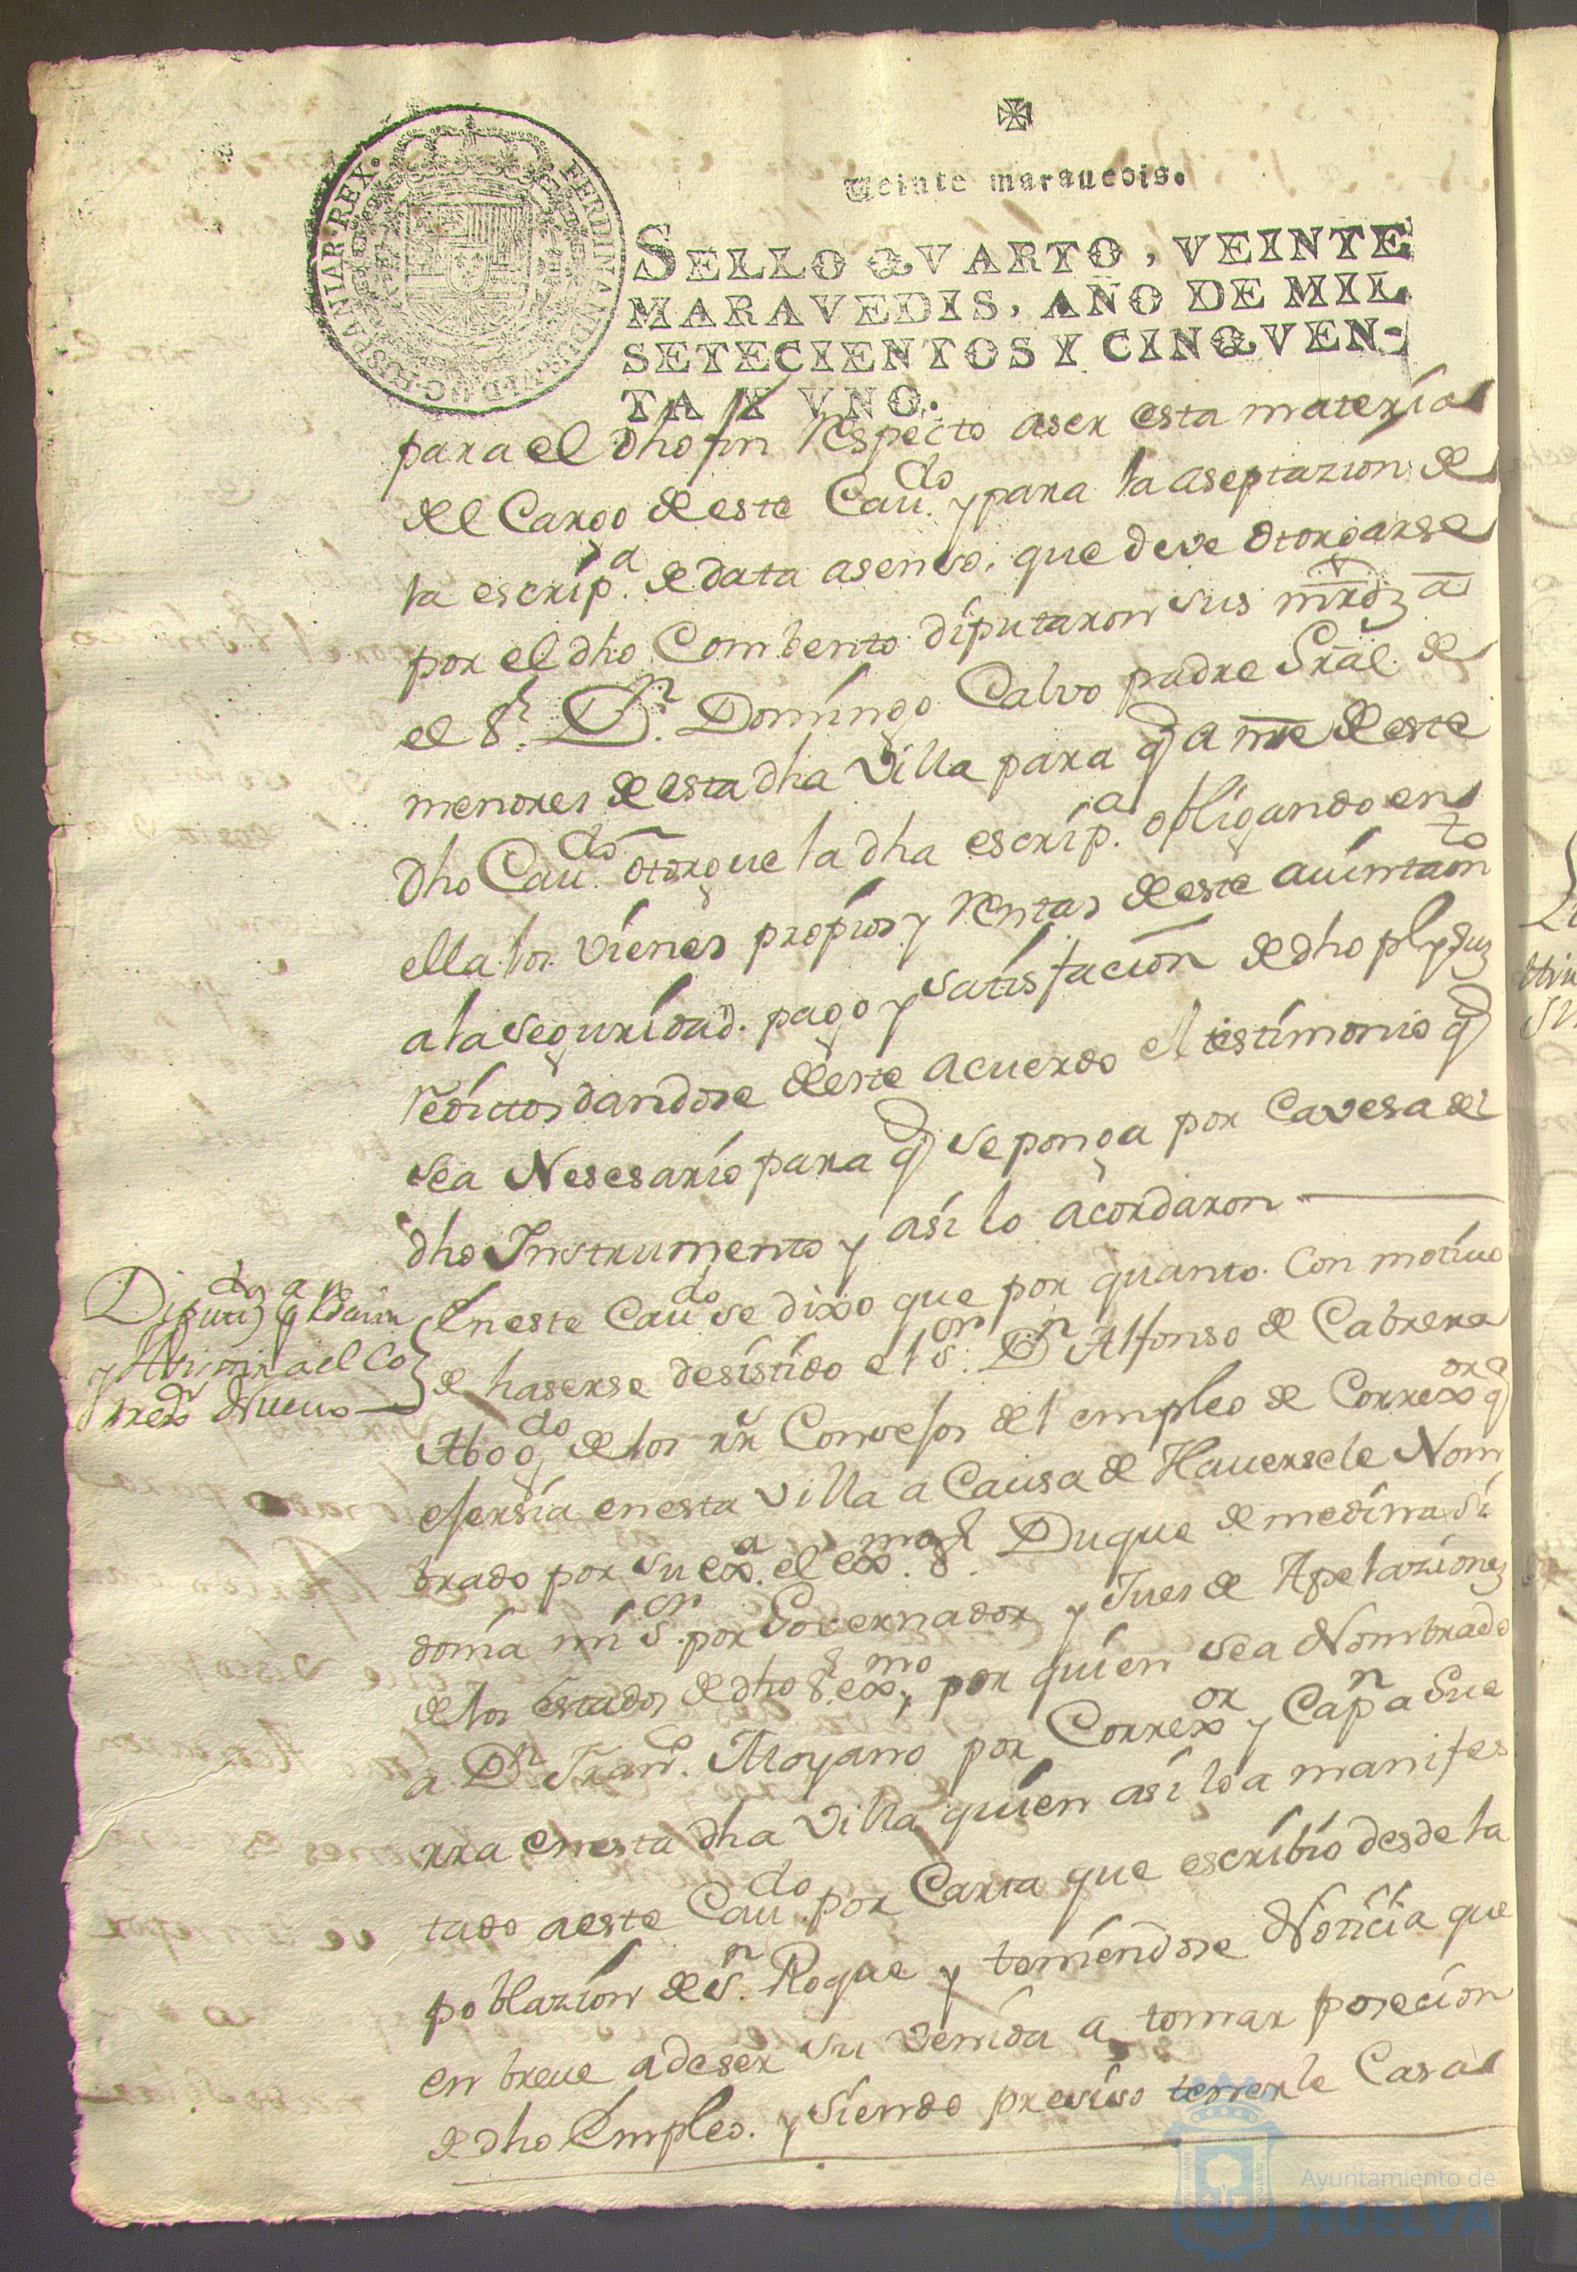 Veinte marauedis.
FERDINANDUS·VI·D·G·HISPANIAR·REX·
SELLO QVARTO, VEINTE
MARAVEDIS, AÑO DE MIL
SETECIENTOS Y CINQVEN-
TA Y VNO.
para el dho fin Respecto aser esta materia
del Cargo de este Cau.do y para la aseptazion de
la escrip.a de data asenso. que deve otorgarse
por el dho Combento diputaron sus mrdz a
el S.r D.n Domingo Calvo padre Gral. de
menores de esta dha Villa para q a nre de este
dho Cau.do otorgue la dha escrip.a obligando en
ella los vienes propios y Rentas de este auintam.to
a la seguridad. pago y satisfacion de dho pl y sus
reditos dandose deeste acuerdo el testimonio q
sea Nesesario para q se ponga por Cavesa del
dho Instrumento y asi lo acordaron
Diputdz pa Reciuir
y Asistir a el Co
rrexr Nueuo
En este Caudo se dixo que por quanto. Con motiuo
de haserse desistido el S.or D.n Alfonso de Cabrera
Abogdo de los rr Consejos del empleo de Correxor q
ejersia en esta Villa a Causa de Hauersele Nom
brado por su exa. el exmo S.r Duque de medina Si
donia mi S.or por Governador y Jues de Apelaziones
de los Estados de dho S.r exmo y por quien sea Nombrado
a Dn Franco. Moyano por Correxor y Capn a Gue
rra en esta dha Villa quien asi lo a manifes
tado a este Caudo. por Carta que escribio desde la
poblazion de Sn. Roque y teniendose Noticia que
en breue a de ser su venida a tomar posecion
de dho Empleo. y siendo presiso tenerle Casa
Ayuntamiento de
HUELVA